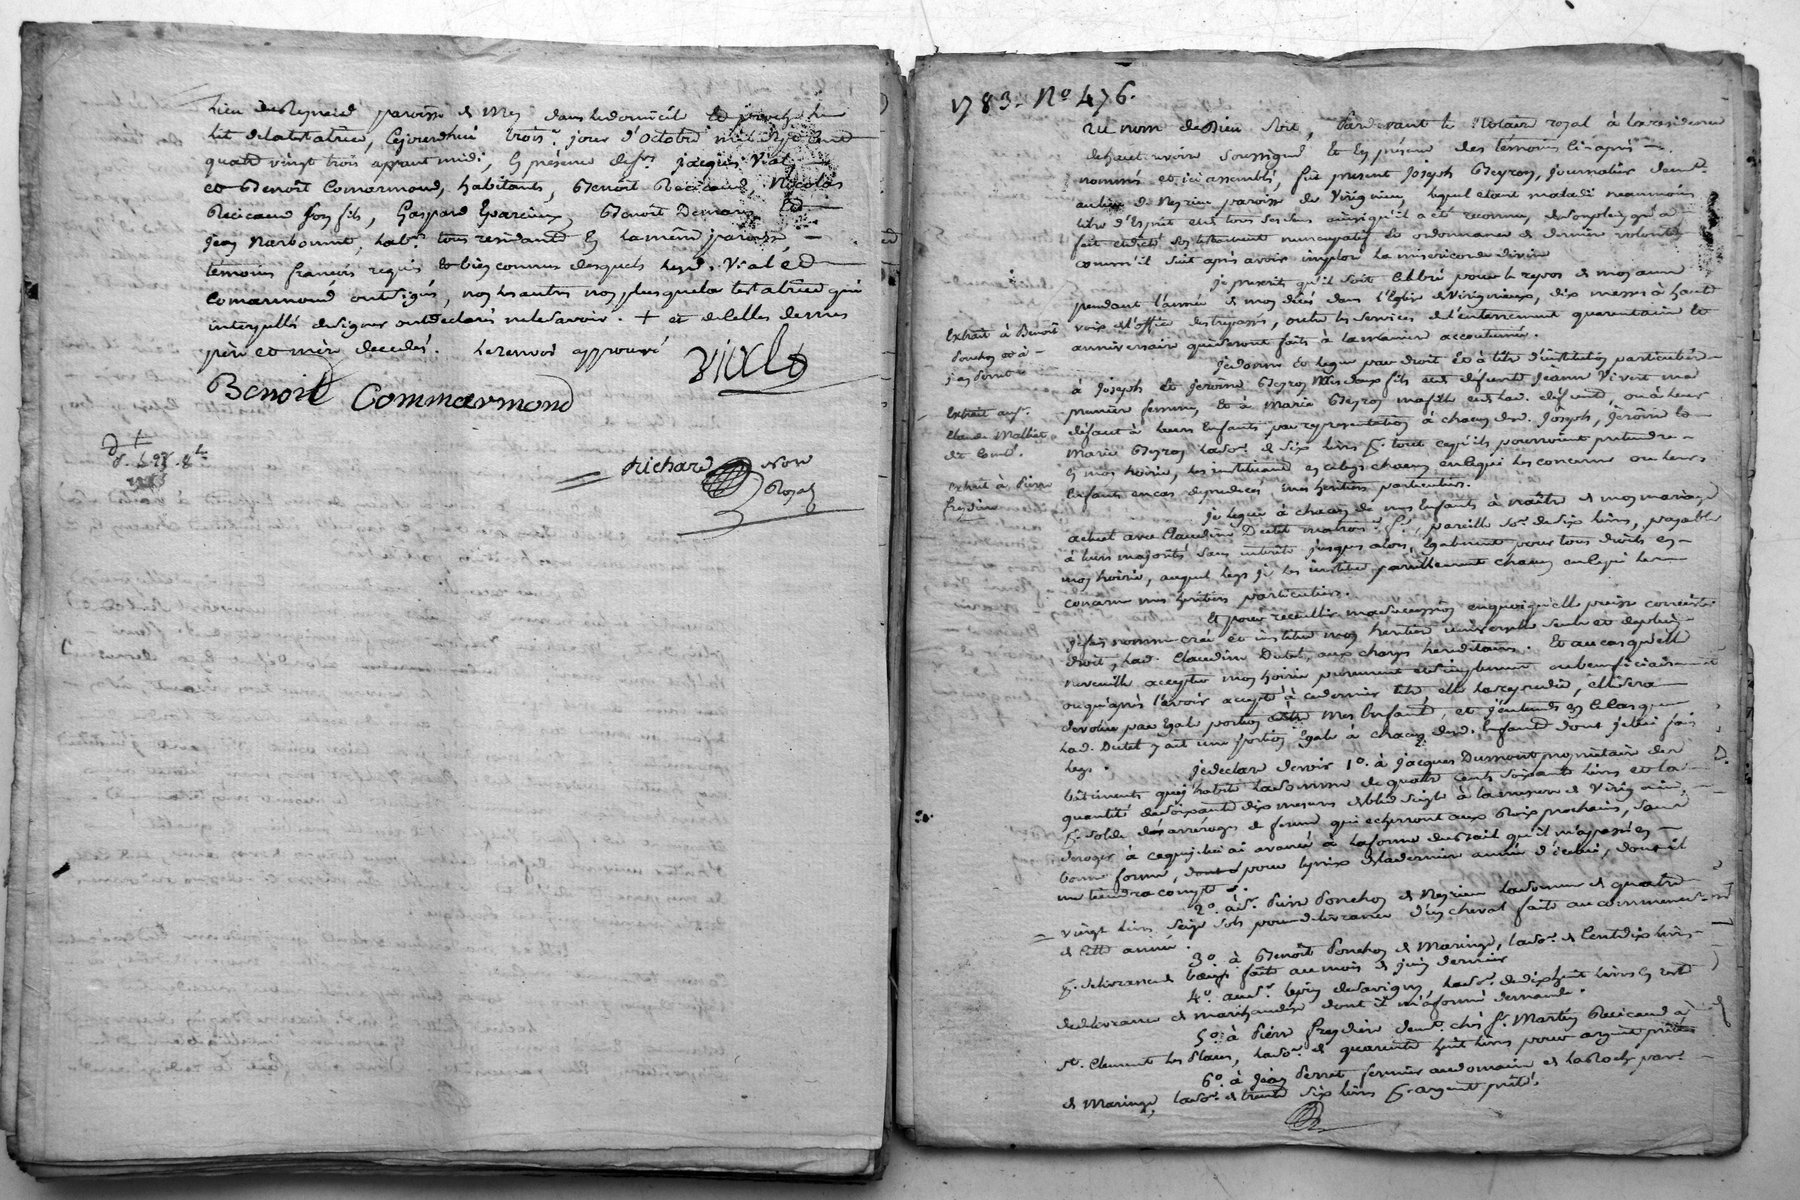 lieu de Reynard paroisse de Mey dans le domicile et proche le
lit de la testatrice, cejourdhui trois.e jour d'octobre mil sept cent
quatre vingt trois avant midi, En présence de s.rs jacques Vial
et Benoit Comarmond, habitants, Benoit Recicaud, Nicolas
Recicaud son fils, Gaspard Eparcieux, Benoit Demare Et
jean Narbonne, hab.ts tous residants En la même paroisse,
temoins françois requis et bien connus desquels lesd. Vial et
Comarmond ont signés, nos les autres non plus que la testatrice qui
interpellés de signer ont declarés ne le savoir. + et de celles de mes
père et mère decedés. le renvoi approuvé
Vial
Benoit Commarmond
Richard No.re
Royal
1783. No 476.
Au nom de Dieu soit, Pardevant le Notaire royal à la residence
de haute rivoire soussigné Et En présence des temoins ci après
nommés et ici assemblés, fut present Joseph Peyron, journalier dem.t
au lieu de Neyrieu paroisse de Virigneux, lequel etant malade neanmoins
libre d'Esprit et de tous ses sens ainsi qu'il a eté reconnu, de son plein gré a
fait et dicté son testament nuncupatif Et ordonnance de dernière volonté
comm'il suit après avoir imploré la misericorde divine
je prescris qu'il soit celebré pour le repos de mon ame
pendant l'année de mon décès dans l'Eglise de Virigneux, dix messes à haute
voix de l'office des trepassés, outre les services d'enterrement quarantaine et
anniversaire qui seront faits à la manière accoutumée.
Extrait à Benoit
Ponchon et à
jean Perret
je donne Et legue par droit Et à titre d'institution particulière
à Joseph et jerome Peyron Mes deux fils et de defunte jeanne Vivert ma
premiere femme, Et à Marie Peyron ma fille et de lad. defunte, ou à leur
defaut à leurs Enfants par representation à chacun desd. Joseph, Jerome Et
Marie Peyron la so.e de six livres p.r tout ce qu'ils pourroient pretendre
En mon hoirie, les instituant en ce legs chacun en ce qui les concerne ou leurs
Enfants en cas de predeces, mes heritiers particuliers.
Extrait au s.r
Claude Mathieu
Extrait à Pierre
Freydiere
je legue à chacun de mes Enfants à naître de mon mariage
actuel avec Claudine Dutel pareille so.e de six livres, payable
à leurs majorités sans interêts jusques alors, Egalement pour tous droits en
mon hoirie, auquel legs je les institue pareillement chacun en ce qui les
concerne mes heritiers particuliers.
Et pour recueillir ma succession en quoi qu'elle puisse consister
je fais nomme crée et institue mon heritiere universelle seule et de plein
droit, lad. Claudine Dutel, aux charges hereditaires. Et au cas qu'elle
ne veuille accepter mon hoirie purement et simplement ou beneficiairement
ou qu'après l'avoir accepté à ce dernier titre, elle la repudie, elle sera
devolue par Egale portion entre mes Enfants, et j'entends en ce cas que
lad. Dutel y ait une portion Egale à chacun desd. Enfants dont je lui fais
legs.
je declare devoir 1o. à jacques Dumont propriétaire des
bâtiments que j'habite la somme de quatre cents soixante livres et la
quantité de soixante dix mesures de bled seigle à la mesure de Virigneux,
p.r solde des arrérages de ferme qui echerront aux Rois prochains, sans
deroger à ce que je lui ai avancé à la forme du bail qu'il m'a passé en
bonne forme, pour le prix de la derniere année d'icelui, dont il
me tiendra compte.
2o. à s.r Pierre Ponchon de Neyrieu la somme de quatre
vingt livres seize sols pour delivrance d'un cheval faite au commencement
de cette année.
3o. à Benoit Ponchon de Maringe, la so.e de Cent dix livres
p.r delivrance de boeufs faite au mois de juin dernier
4o. au s.r de Savigneux, la so.e de dix huit livres En reste
de delivrance de marchandise dont il m'a formé demande.
5o. à Pierre Freydiere dem.t chés s.r Martin Recicaud à
St. Clement les Places, la so.e de quarante huit livres pour argent prêté
6o. à jean Perret fermier au domaine de la Roche par.sse
de Maringe, la so.e de trente six livres p.r argent prêté.